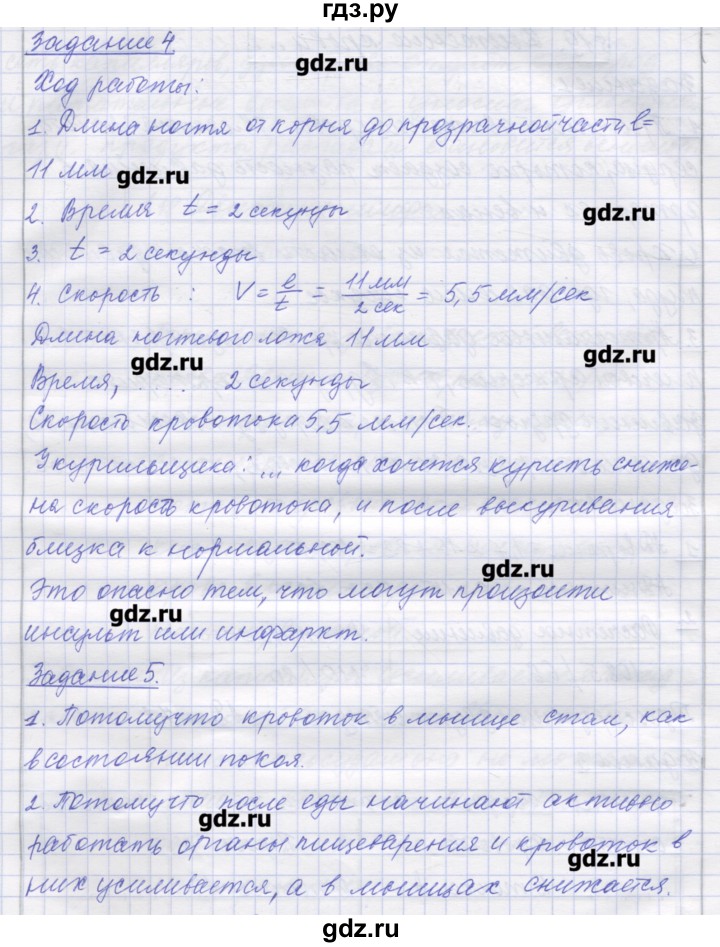 гдз.ру
Задание 4.
gdz.ru
Ход работы:
1. Длина ногтя от корня до прозрачной части l=
11 мм gdz.ru
2. Время t = 2 секунды gdz.ru
3. t = 2 секунды
4. Скорость : V = l/t = 11 мм/2 сек = 5,5 мм/сек
Длина ногтевого ложа 11 мм
gdz.ru gdz.ru
Время, ..... 2 секунды
Скорость кровотока 5,5 мм/сек.
У курильщика: ... когда хочется курить сниже-
на скорость кровотока, и после выкуривания
близка к нормальной.
gdz.ru
Это опасно тем, что могут произойти
gdz.ru
инсульт или инфаркт.
Задание 5.
1. Потому что кровоток в мышце стал, как
в состоянии покоя.
2. Потому что после еды начинают активно
gdz.ru
работать органы пищеварения и кровоток в
gdz.ru
них усиливается, а в мышцах снижается.
gdz.ru